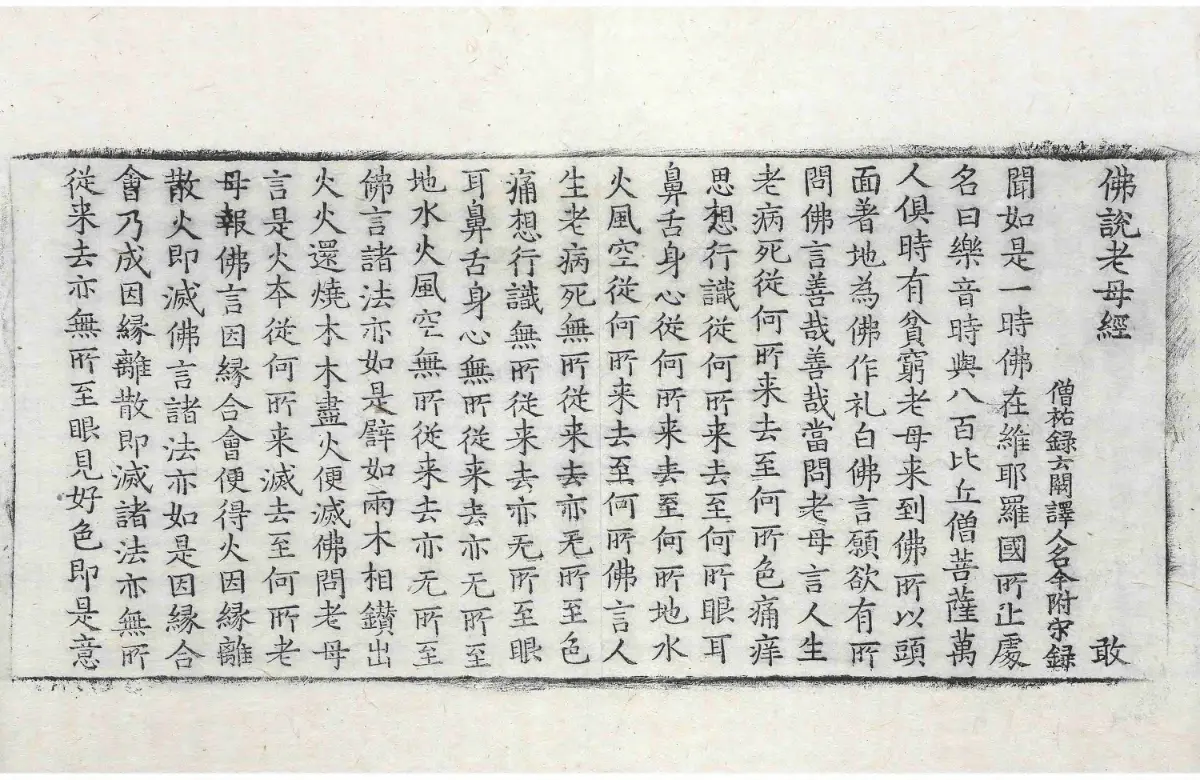 佛說老母經 敢
僧祐録云闕譯人名今附宋録
聞如是一時佛在維耶羅國所止處
名曰樂音時與八百比丘僧菩薩萬
人俱時有貧窮老母来到佛所以頭
面著地為佛作礼白佛言願欲有所
問佛言善哉善哉當問老母言人生
老病死從何所来去至何所色痛痒
思想行識從何所来去至何所眼耳
鼻舌身心從何所来去至何所地水
火風空從何所来去至何所佛言人
生老病死無所從来去亦无所至色
痛想行識無所從来去亦无所至眼
耳鼻舌身心無所從来去亦无所至
地水火風空無所從来去亦无所至
佛言諸法亦如是譬如兩木相鑚出
火火還燒木木盡火便滅佛問老母
言是火本從何所来滅去至何所老
母報佛言因縁合會便得火因縁離
散火即滅佛言諸法亦如是因縁合
會乃成因縁離散即滅諸法亦無所
從来去亦無所至眼見好色即是意